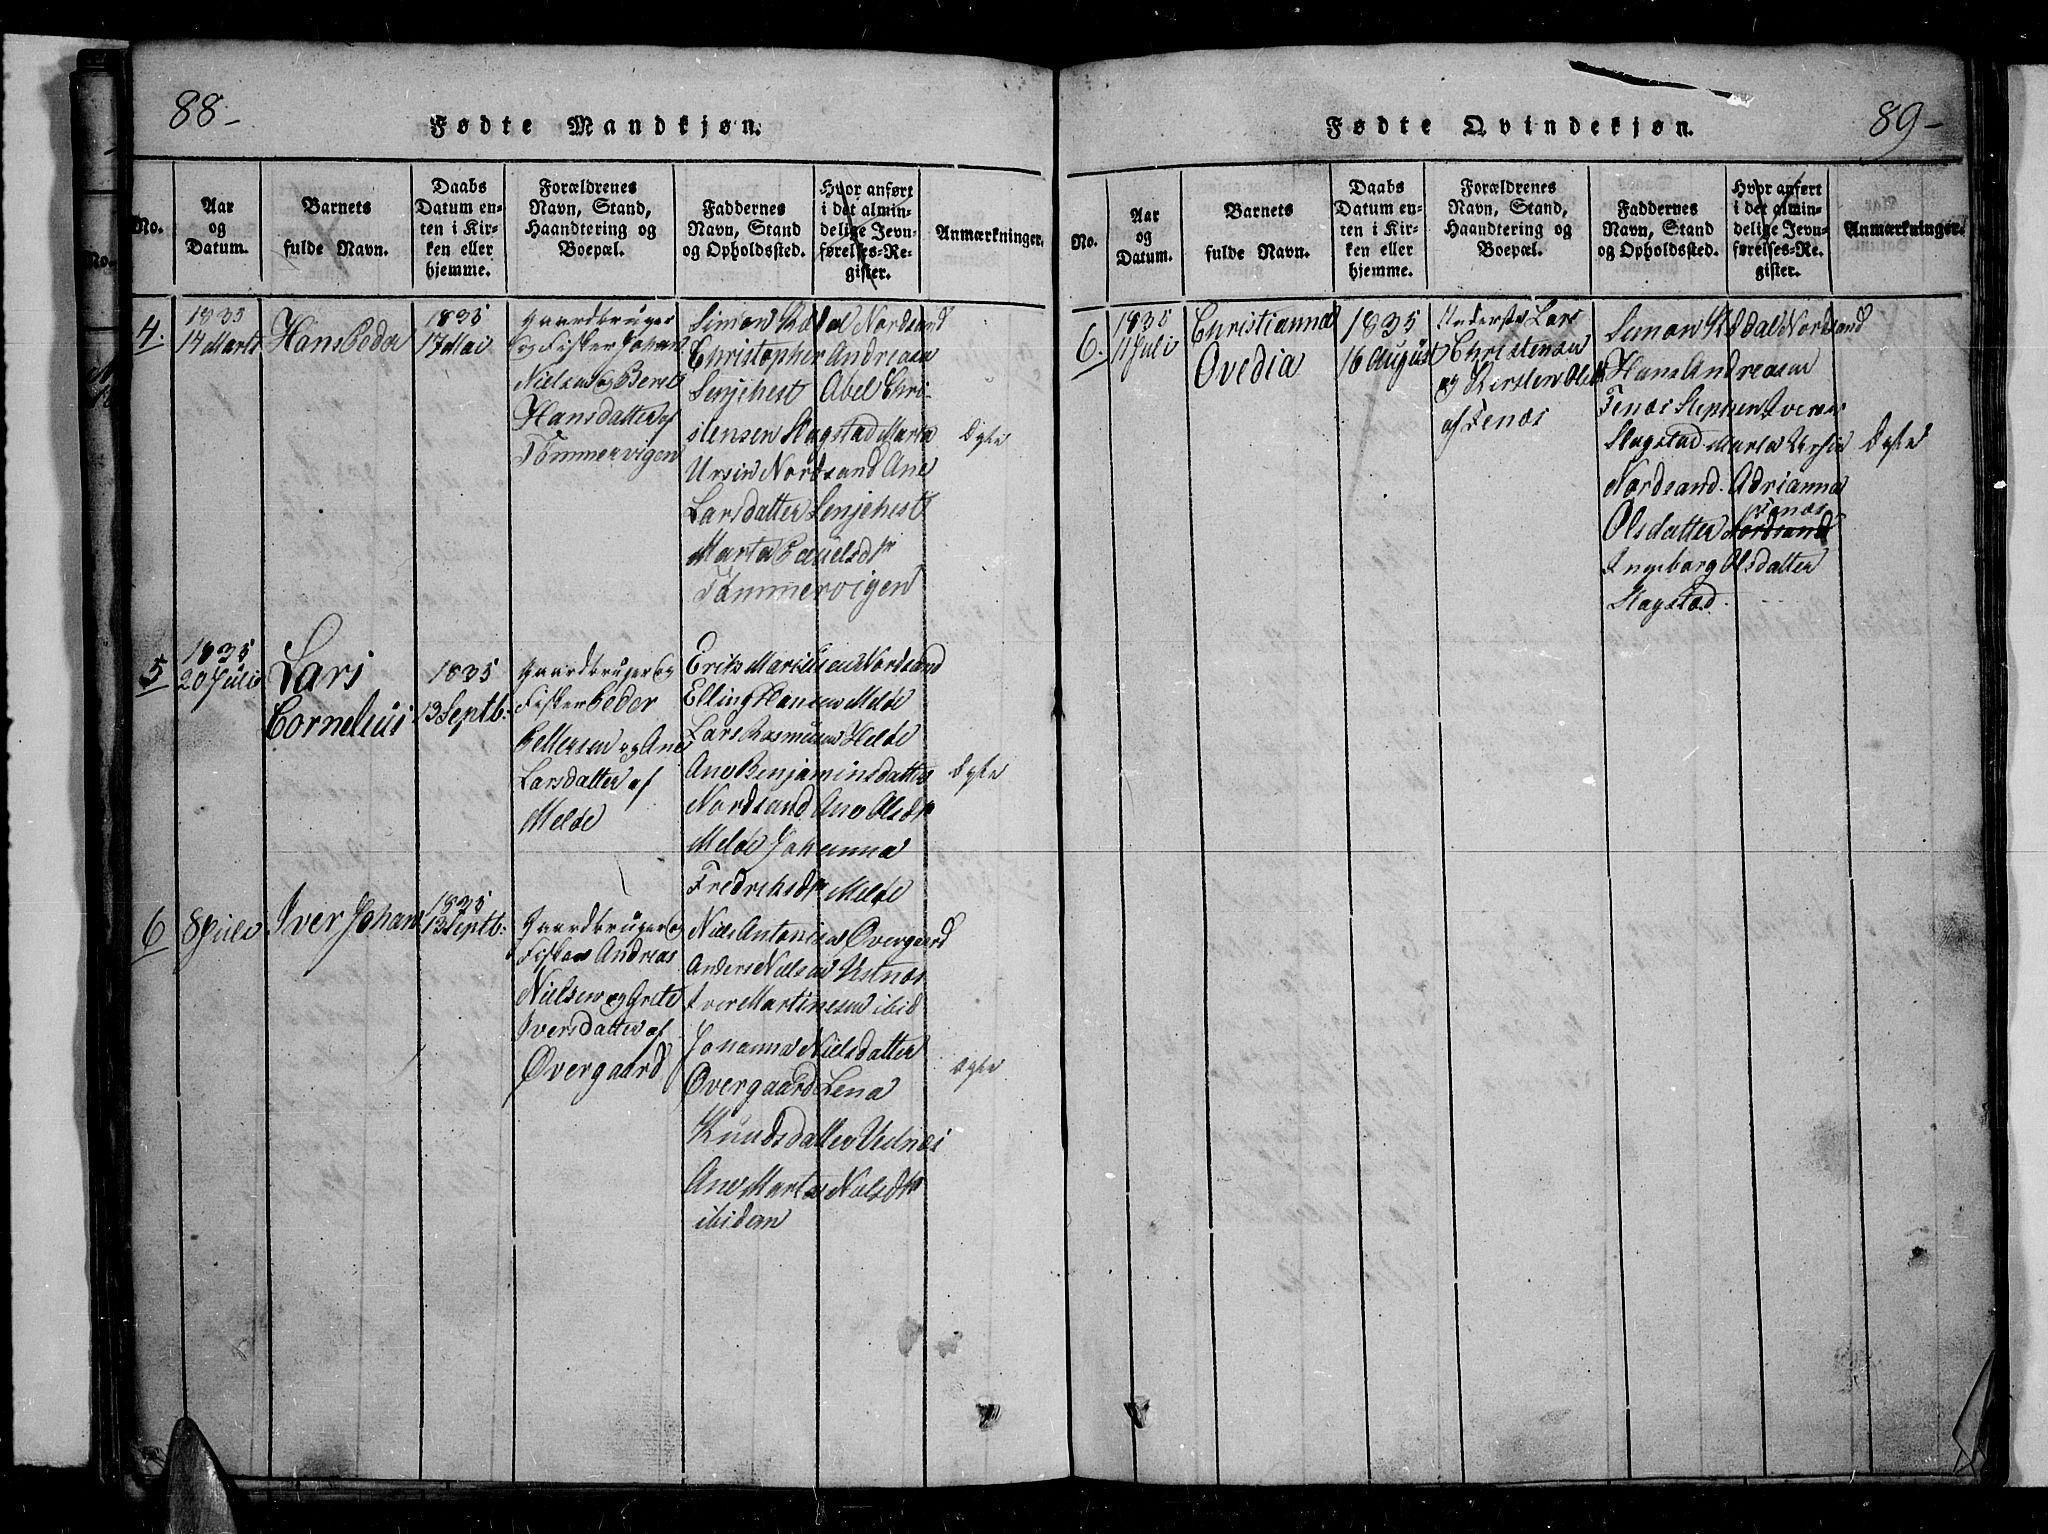 88-
Fødte Mandkjøn.
No.
Aar og Datum.
Barnets fulde Navn.
Daabs Datum enten i Kirken eller hjemme.
Forældrenes Navn, Stand, Haandtering og Boepæl.
Faddernes Navn, Stand og Opholdssted.
Hvor anført i det almindelige Jevnførelses-Register.
Anmærkninger.
4.
1835
14 Marts
Hans Peder
1835
17 Mai
Gaardbruger
og Fisker Johan
Nielsen og Beret
Hansdatter af
Tømmervigen
Simon Kildal Nordsand
Christopher Andreasen
Senjehest Abel Chri-
stensen Hagstad Marta
Ursin Nordsand Ane
Larsdatter Senjehest
Marta Paulsdtr
Tømmervigen
Ægte
5
1835
20 Juli
Lars
Cornelius
1835
13 Septb:
Gaardbruger og
Fisker Peder
Pettersen og Ane
Larsdatter af
Melde
Erik Mariusen Nordsand
Elling Hansen Melde
Lars Rasmusen Melde
Ane Benjaminsdatter
Nordsand Ane Olsdtr
Melde Johanna
Fredriksdtr Melde
Ægte
6
8 Juli
Iver Johan
1835
13 Septb:
Gaardbruger og
Fisker Andreas
Nielsen og Grete
Iversdatter af
Øvergaard
Niels Antonisen Øvergaard
Anders Nielsen
Iver Martinesen ibid
Johanna Nielsdatter
Øvergaard Lena
Knudsdatter
Ane Marta Nielsdtr
ibidem
Ægte
89-
Fødte Qvindekjøn.
No.
Aar og Datum.
Barnets fulde Navn.
Daabs Datum enten i Kirken eller hjemme.
Forældrenes Navn, Stand, Haandtering og Boepæl.
Faddernes Navn, Stand og Opholdssted.
Hvor anført i det almindelige Jevnførelses-Register.
Anmærkninger.
6.
1835
11 Juli
Christianna
Ovedia
1835
16 August
Lars
Christensen
og Kersten
af Fenæs
Simon Kildal Nordsand
Hans Andreasen
Fenæs Iver
Hagstad Marta Ursin
Nordsand Adrianna
Fenæs
Olsdatter Nordsand
Ingeborg Olsdatter
Hagstad.
Ægte